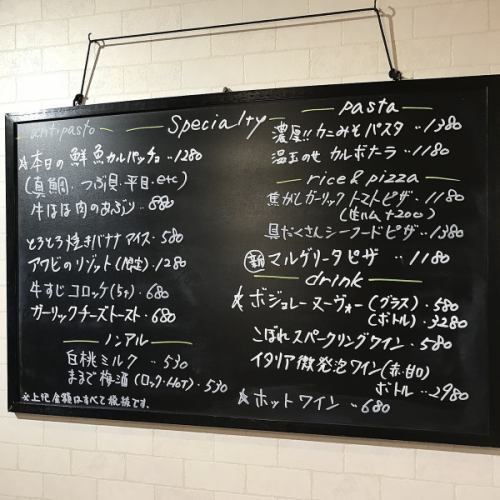 Specialty
antipasto
☆本日の鮮魚カルパッチョ‥1280
(真鯛・つぶ貝・平目・etc)
牛ほほ肉のあぶり‥880
とろとろ焼きバナナアイス・580
アワビのリゾット(限定)・1280
牛すじコロッケ(5ヶ)・680
ガーリックチーズトースト・680
ノンアル
白桃ミルク‥530
まるで梅酒(ロック・HOT)・530
※上記金額はすべて税抜です。
pasta
濃厚!!カニみそパスタ‥1380
温玉のせカルボナーラ‥1180
rice & pizza
焦がしガーリックトマトピザ・1180
(生ハム+200)
具だくさんシーフードピザ‥1380
新マルゲリータピザ‥1180
drink
☆ボジョレーヌーヴォー(グラス)・580
(ボトル)・3280
こぼれスパークリングワイン・580
イタリア微発泡ワイン(赤・甘口)
ボトル‥2980
☆ホットワイン‥680